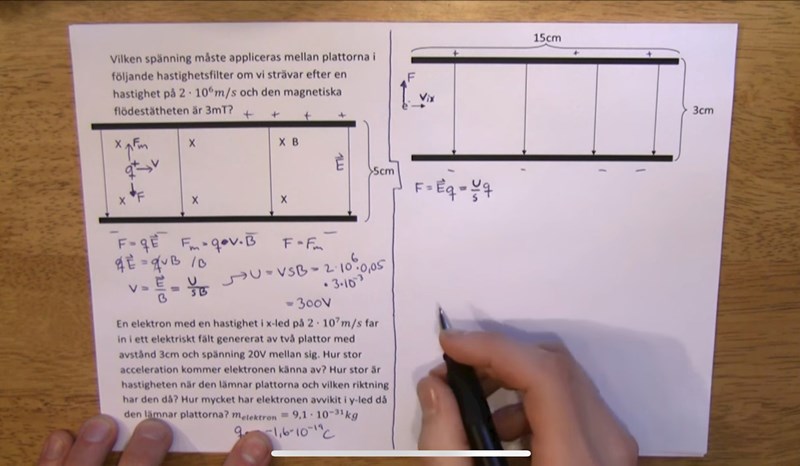 Vilken spänning måste appliceras mellan plattorna i
följande hastighetsfilter om vi strävar efter en
hastighet på 2 · 10⁶m/s och den magnetiska
flödestätheten är 3mT?
+ + + +
X Fₘ X X B
q⁺ → V E⃗ 5cm
X F X X
F = qE⃗ Fₘ = q•V·B⃗ F = Fₘ
qE⃗ = qVB /B
V = E⃗/B = U/SB → U = VSB = 2·10⁶·0,05
·3·10⁻³
= 300V
En elektron med en hastighet i x-led på 2 · 10⁷m/s far
in i ett elektriskt fält genererat av två plattor med
avstånd 3cm och spänning 20V mellan sig. Hur stor
acceleration kommer elektronen känna av? Hur stor är
hastigheten när den lämnar plattorna och vilken riktning
har den då? Hur mycket har elektronen avvikit i y-led då
den lämnar plattorna? mₑₗₑₖₜᵣₒₙ = 9,1 · 10⁻³¹kg
-1,6·10⁻¹⁹C
15cm
+ + +
F
e⁻ → Vix
3cm
F = E⃗q = U/S q